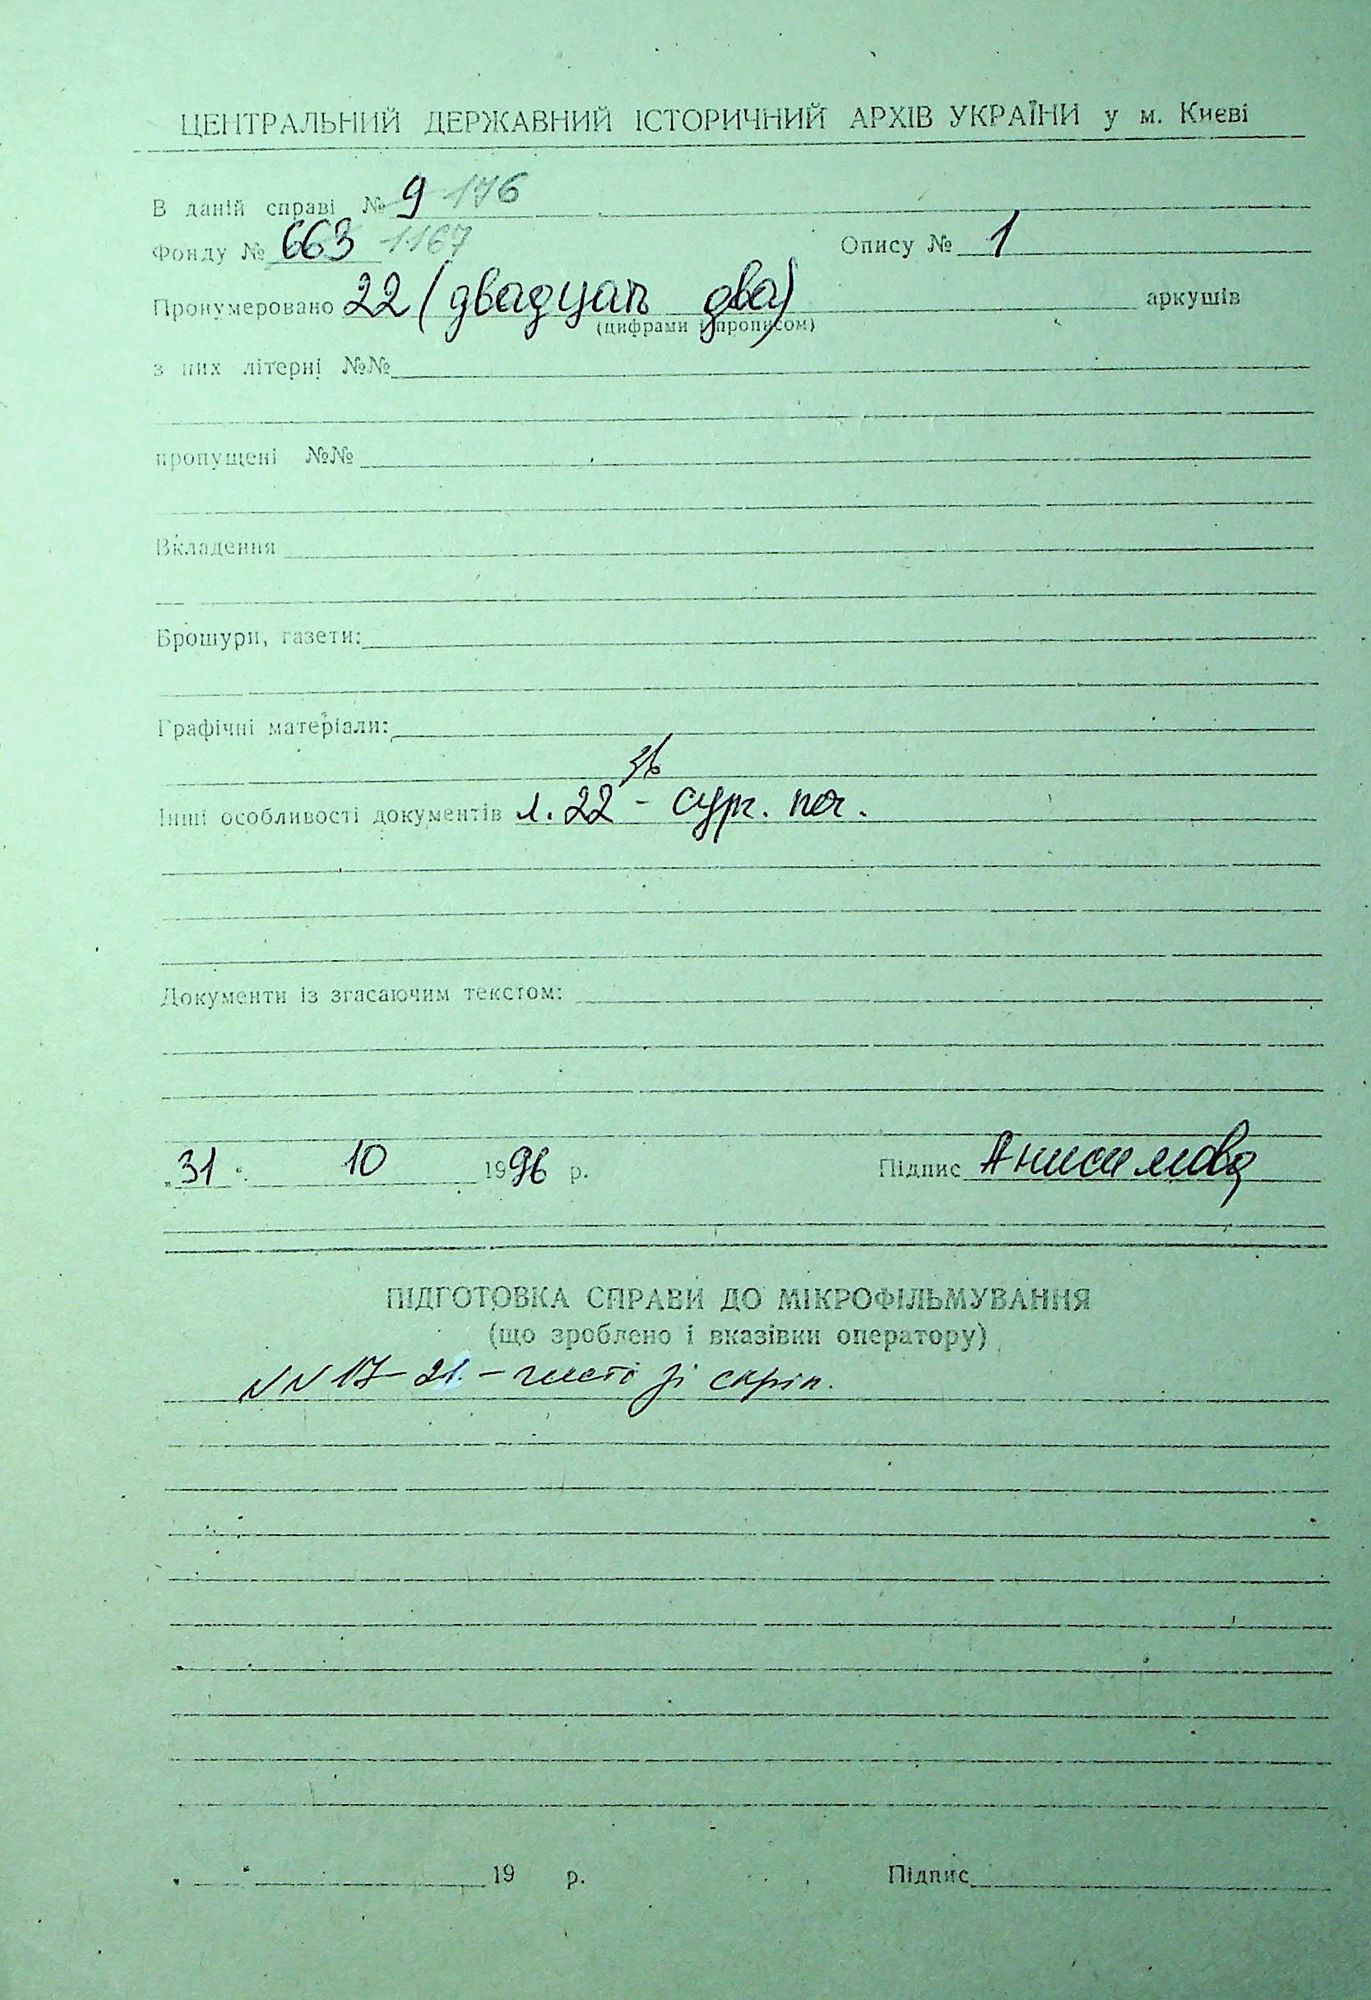 ЦЕНТРАЛЬНИЙ ДЕРЖАВНИЙ ІСТОРИЧНИЙ АРХІВ УКРАЇНИ у м. Києві
В даній справі № 9 176
Фонду № 663 1167 Опису № 1
Пронумеровано 22 (двадцать два) аркушів
(цифрами і прописом)
з них літерні №№
пропущені №№
Вкладення
Брошури, газети:
Графічні матеріали:
Інші особливості документів л. 22 зв - сург. печ.
Документи із згасаючим текстом:
„31" 10 1996 р. Підпис Анисимова
ПІДГОТОВКА СПРАВИ ДО МІКРОФІЛЬМУВАННЯ
(що зроблено і вказівки оператору)
NN 17-21 - чисті зі скріп.
„ " 19 р. Підпис